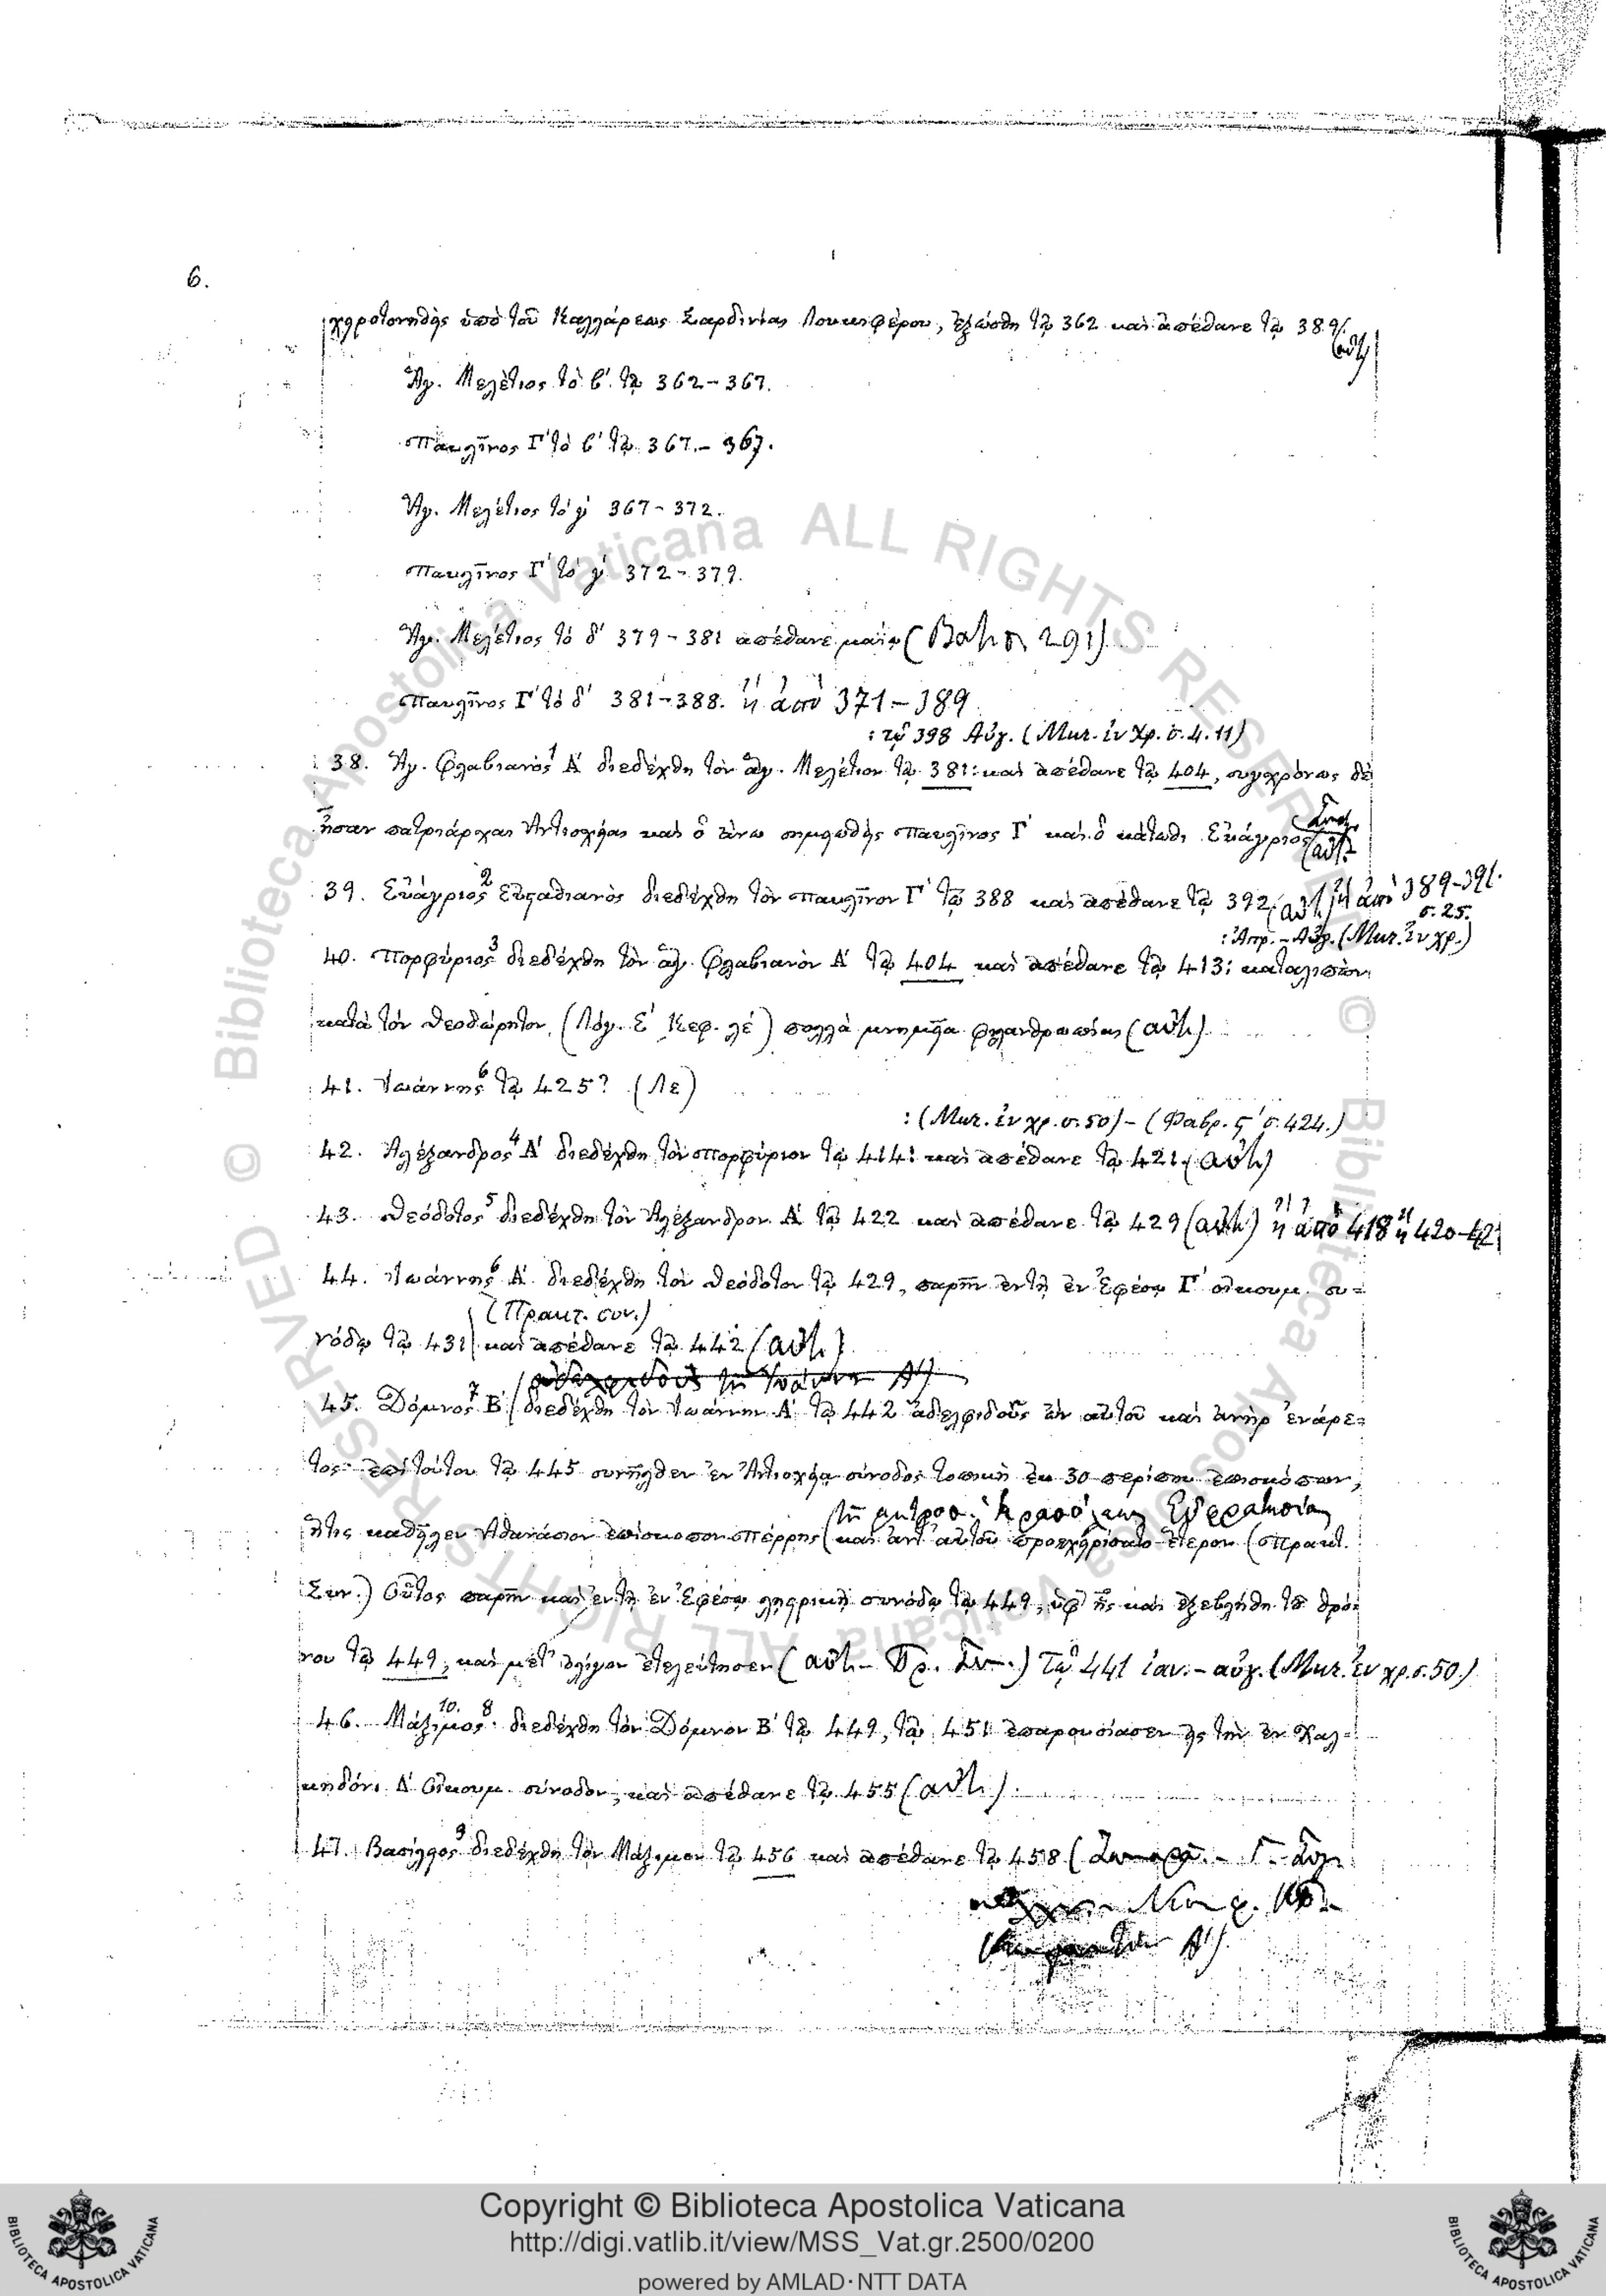 6.
χειροτονηθεὶς ὑπὸ τοῦ Καλλάρεως Σαρδινίας Λουκιφέρου, ἐξώσθη τῷ 362 καὶ ἀπέθανε τῷ 389.
(αὐτ)
Ἅγ. Μελέτιος τὸ β'. τῷ 362-367.
Παυλῖνος Γ' τὸ β' τῷ 367.- 367.
Ἅγ. Μελέτιος τὸ γ' 367-372.
Παυλῖνος Γ' τὸ γ' 372-379.
Ἅγ. Μελέτιος τὸ δ' 379-381 ἀπέθανε μαίῳ ( 291)
Παυλῖνος Γ' τὸ δ' 381-388. ἢ ἀπὸ 371-389
: τῷ 398 Αὐγ. (Μυτ. ἐν χρ. σ. 4. 11)
38. Ἅγ. Φλαβιανὸς¹ Α' διεδέχθη τὸν ἅγ. Μελέτιον τῷ 381: καὶ ἀπέθανε τῷ 404, συγχρόνως δὲ
ἦσαν πατριάρχαι Ἀντιοχείας καὶ ὁ ἄνω σημειωθεὶς Παυλῖνος Γ' καὶ ὁ κάτωθι Εὐάγριος
(αὐτ.
39. Εὐάγριος² Εὐσταθιανὸς διεδέχθη τὸν Παυλῖνον Γ' τῷ 388 καὶ ἀπέθανε τῷ 392 (αὐτ.) ἢ ἀπὸ 389-391.
σ. 25.
: Ἀπρ. - Αὐγ. (Μυτ. ἐν χρ.)
40. Πορφύριος³ διεδέχθη τὸν ἅγ. Φλαβιανὸν Α' τῷ 404 καὶ ἀπέθανε τῷ 413: καταλιπὼν
κατὰ τὸν Θεοδώρητον, (Λόγ. Ε' Κεφ. λέ) πολλὰ μνημεῖα φιλανθρωπίας (αὐτ.)
41. Ἰωάννης⁶ τῷ 425? (Λε)
: (Μυτ. ἐν χρ. σ. 50) - (Φαβρ. ς' σ. 424.)
42. Ἀλέξανδρος⁴ Α' διεδέχθη τὸν Πορφύριον τῷ 414: καὶ ἀπέθανε τῷ 421 (αὐτ.)
43. Θεόδοτος⁵ διεδέχθη τὸν Ἀλέξανδρον Α' τῷ 422 καὶ ἀπέθανε τῷ 429 (αὐτ.) ἢ ἀπὸ 418 ἢ 420-42
44. Ἰωάννης⁶ Α' διεδέχθη τὸν Θεόδοτον τῷ 429, παρῆν ἐν τῇ ἐν Ἐφέσῳ Γ' οἰκουμ. συ=
(Πρακτ. συν.)
νόδῳ τῷ 431 καὶ ἀπέθανε τῷ 442 (αὐτ.)
45. Δόμνος⁷ Β' διεδέχθη τὸν Ἰωάννην Α' τῷ 442 ἀδελφιδοῦς ὢν αὐτοῦ καὶ ἀνὴρ ἐνάρε=
τος· ἐπὶ τούτου τῷ 445 συνῆλθεν ἐν Ἀντιοχείᾳ σύνοδος τοπικὴ ἐκ 30 περίπου ἐπισκόπων,
ἥτις καθεῖλεν Ἀθανάσιον ἐπίσκοπον Πέρρης καὶ ἀντ' αὐτοῦ προεχειρίσατο ἕτερον (Πρακτ.
Συν.) Οὗτος παρῆν καὶ ἐν τῇ ἐν Ἐφέσῳ λῃστρικῇ συνόδῳ τῷ 449, ὑφ' ἧς καὶ ἐξεβλήθη τοῦ θρό=
νου τῷ 449, καὶ μετ' ὀλίγον ἐτελεύτησεν (αὐτ. - Πρ. Συν.) τῷ 441 ἰαν. - αὐγ. (Μυτ. ἐν χρ. σ. 50.)
46. Μάξιμος¹⁰ ⁸ διεδέχθη τὸν Δόμνον Β' τῷ 449, τῷ 451 ἐπαρουσίασεν εἰς τὴν ἐν Χαλ=
κηδόνι Δ' Οἰκουμ. σύνοδον, καὶ ἀπέθανε τῷ 455 (αὐτ.).
47. Βασίλειος⁹ διεδέχθη τὸν Μάξιμον τῷ 456 καὶ ἀπέθανε τῷ 458
Copyright © Biblioteca Apostolica Vaticana
http://digi.vatlib.it/view/MSS_Vat.gr.2500/0200
powered by AMLAD·NTT DATA